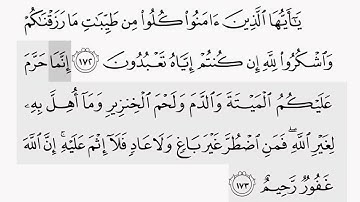 يَـٰٓأَيُّهَا ٱلَّذِينَ ءَامَنُوا۟ كُلُوا۟ مِن طَيِّبَـٰتِ مَا رَزَقْنَـٰكُمْ
وَٱشْكُرُوا۟ لِلَّهِ إِن كُنتُمْ إِيَّاهُ تَعْبُدُونَ ١٧٢ إِنَّمَا حَرَّمَ
عَلَيْكُمُ ٱلْمَيْتَةَ وَٱلدَّمَ وَلَحْمَ ٱلْخِنزِيرِ وَمَآ أُهِلَّ بِهِۦ
لِغَيْرِ ٱللَّهِ ۖ فَمَنِ ٱضْطُرَّ غَيْرَ بَاغٍ وَلَا عَادٍ فَلَآ إِثْمَ عَلَيْهِ ۚ إِنَّ ٱللَّهَ
غَفُورٌ رَّحِيمٌ ١٧٣